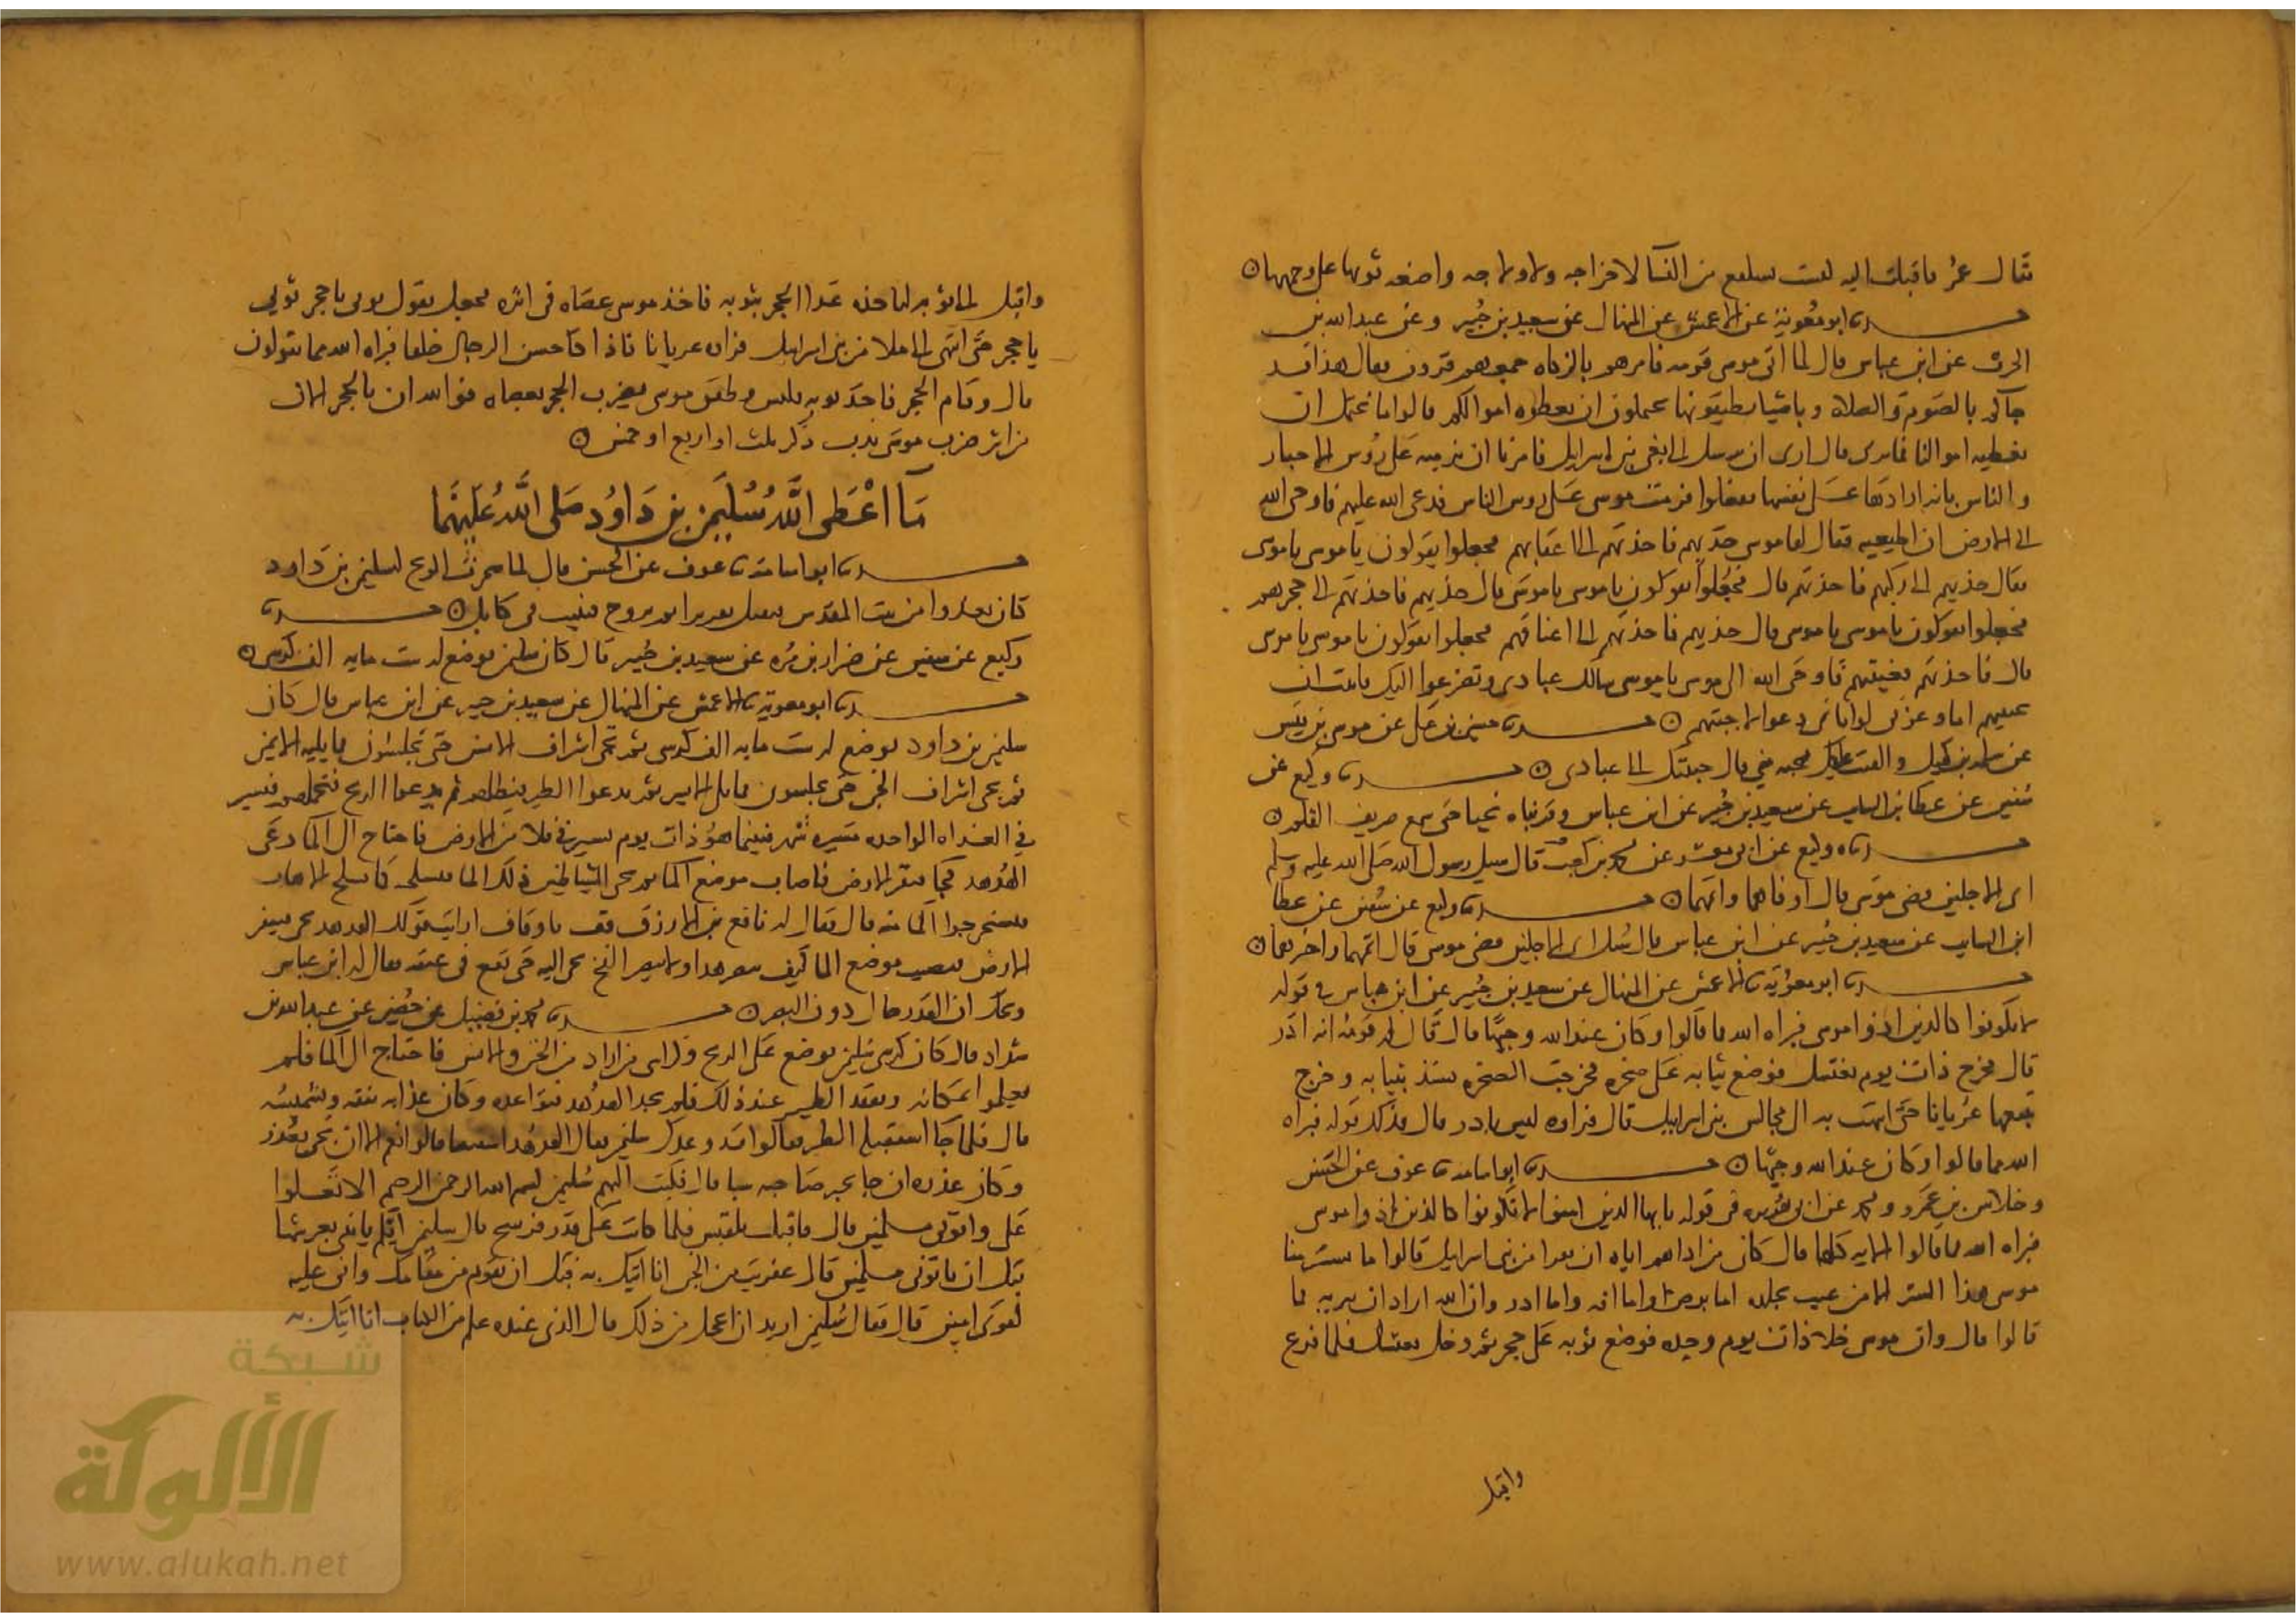 فقال عمر فاقبلت اليه ليست بسلفع من النسا لا خراجه ولا ولاجه واضعه ثوبها على وجهها
حدثنا ابو معوية عن الاعمش عن المنهال عن سعيد بن جُبير وعن عبد الله بن
الحرث عن ابن عباس قال لما اتى موسى قومه فامرهم بالزكاه جمعهم قرون فقال هذا قد
جاكم بالصوم والصلاة وباشيا تطيقونها تحتملون ان تعطوه اموالكم قالوا ما نحتمل ان
نعطيه اموالنا فما ترى قال ارى ان نرسل الى بغي بني اسرايل فنامرها ان ترميه على رُوس الاحبار
والناس بانه ارادها على نفسها ففعلوا فرمت موسى على روس الناس فدعى الله عليهم فاوحى الله
الى الارض ان اطيعيه فقال لها موسى خذيهم فاخذتهم الى اعقابهم فجعلوا يقولون يا موسى يا موسى
فقال خذيهم الى ركبهم فاخذتهم قال فجعلوا يقولون يا موسى يا موسى قال خذيهم فاخذتهم الى حجزهم
فجعلوا يقولون يا موسى يا موسى قال خذيهم فاخذتهم الى اعناقهم فجعلوا يقولون يا موسى يا موسى
قال فاخذتهم فغيبتهم فاوحى الله الى موسى يا موسى سالك عبادي وتضرعوا اليك فابيت ان
تجيبهم اما وعزتي لو اياي دعوا لاجبتهم حدثنا حسين بن علي عن موسى بن قيس
عن سلمه بن كهيل والقيت عليك محبه مني قال حببتك الى عبادي حدثنا وكيع عن
سفين عن عطا بن السايب عن سعيد بن جُبير عن ابن عباس وقربناه نجيا حتى سمع صريف القلم
حدثنا وكيع عن ابي معشر عن محمد بن كعب قال سيل رسول الله صلى الله عليه وسلم
اي الاجلين قضى موسى قال اوفاهما واتمهما حدثنا وكيع عن سفين عن عطا
ابن السايب عن سعيد بن جُبير عن ابن عباس قال سُيل اي الاجلين قضى موسى قال اتمهما واخرهما
حدثنا ابو معوية الاعمش عن المنهال عن سعيد بن جُبير عن ابن عباس في قوله
لا تكونوا كالذين اذوا موسى فبراه الله مما قالوا وكان عند الله وجيها قال قال له قومه انه ادر
قال فخرج ذات يوم يغتسل فوضع ثيابه على صخره فخرجت الصخره تشتد بثيابه وخرج
يتبعها عُريانا حتى انتهت به الى مجالس بني اسرايل قال فراوه ليس بادر قال فذلك قوله فبراه
الله مما قالوا وكان عند الله وجيها حدثنا ابو اسامة عوف عن الحسن
وخلاس بن عمرو ومحمد عن ابي هريره في قوله يا يها الذين امنوا لا تكونوا كالذين اذوا موسى
فبراه الله مما قالوا الايه كلها قال كان من اذاهم اياه ان نفرا من بني اسرايل قالوا ما يستتر منا
موسى هذا التستر الا من عيب بجلده اما برص واما افه واما ادر وان الله اراد ان يبريه مما
قالوا قال وان موسى خلا ذات يوم وحده فوضع ثوبه على حجر ثم دخل يغتسل فلما فرغ
واقبل
واقبل الى ثوبه لياخذه غدا الحجر بثوبه فاخذ موسى عصاه في اثره فجعل يقول ثوبي يا حجر ثوبي
يا حجر حتى انتهى الى ملا من بني اسرايل فراه عريانا فاذا كاحسن الرجال خلقا فبراه الله مما يقولون
قال وقام الحجر فاخذ ثوبه فلبسه وطفق موسى يضرب الحجر بعصاه فوالله ان بالحجر الان
من اثر ضرب موسى ندب ذكر ثلث او اربع او خمس
مَا اعْطى الله سُليمن بن دَاوُد صَلى اللهُ عليهمَا
حدثنا ابو اسامة عوف عن الحسن قال لما سخرت الريح لسليمن بن داود
كان يغدوا من بيت المقدس فيقيل بقزيرا ثم يروح فيبيت في كابل حدثنا
وكيع عن سفين عن ضرار بن مُره عن سعيد بن جُبير قال كان سليمن يوضع له ست مايه الف كرسي
حدثنا ابو معوية الاعمش عن المنهال عن سعيد بن جبير عن ابن عباس قال كان
سليمن بن داود يوضع له ست مايه الف كرسي ثم تجي اشراف الانس حتى يجلسون مما يليه الايمن
ثم تجي اشراف الجن حتى يجلسون مما يلي الايسر ثم يدعوا الطير فيظلهم ثم يدعوا الريح فتحملهم فيسير
في الغداه الواحده مسيره شهر فبينما هو ذات يوم يسير في فلاه من الارض فاحتاج الى الما دعى
الهدهد فجا فنقر الارض فاصاب موضع الما ثم تجي الشياطين ذلك الما فتسلخه كما يسلخ الاهاب
فيستخرجوا الما منه قال فقال له نافع بن الازرق قف يا وقاف ارايت قولك الهدهد يجي فينقر
الارض فيصيب موضع الما كيف يبصر هذا ولا يبصر الفخ يجي اليه حتى يقع في عنقه فقال له ابن عباس
ويحك ان القدر حال دون البصر حدثنا محمد بن فضيل عن حُصين عن عبد الله بن
شداد قال كان كرسي سليمن يوضع على الريح وكراسي من اراد من الجن والانس فاحتاج الى الما فلم
يعلموا بمكانه وتفقد الطير عند ذلك فلم يجد الهدهد فتواعده وكان عذابه نتفه وتشميسُه
قال فلما جا استقبله الطير فقالوا قد وعدك سليمن فقال الهدهد استثنى قالوا نعم الا ان تجي بعذر
وكان عذره ان جا بخبر صاحبه سبا قال فكتب اليهم سُليمن بسم الله الرحمن الرحيم الا تعلوا
علي واتوني مسلمين قال فاقبلت بلقيس فلما كانت على قدر فرسخ قال سليمن ايكم ياتيني بعرشها
قبل ان ياتوني مسلمين قال عفريت من الجن انا اتيك به قبل ان تقوم من مقامك واني عليه
لقوى امين قال فقال سُليمن اريد ان اعجل من ذلك قال الذي عنده علم من الكتاب انا اتيك به
شبكة
الألوكة
www.alukah.net